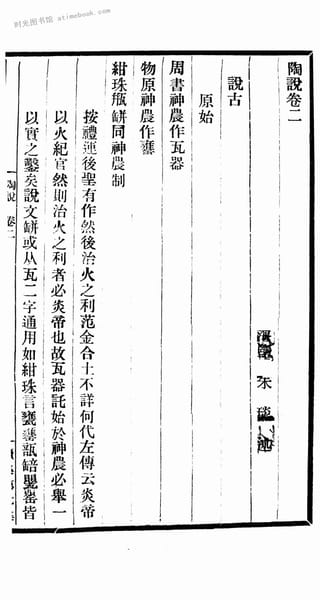 时光图书馆 atimebook.com
陶說卷二
朱琰
說古
原始
周書神農作瓦器
物原神農作甕
紺珠瓶缾同神農制
按禮運後聖有作然後治火之利范金合土不詳何代左傳云炎帝
以火紀官然則治火之利者必炎帝也故瓦器託始於神農必舉一
以實之鑿矣說文缾或从瓦二字通用如紺珠言甕罋瓿䍌甖罌皆
陶說 卷二